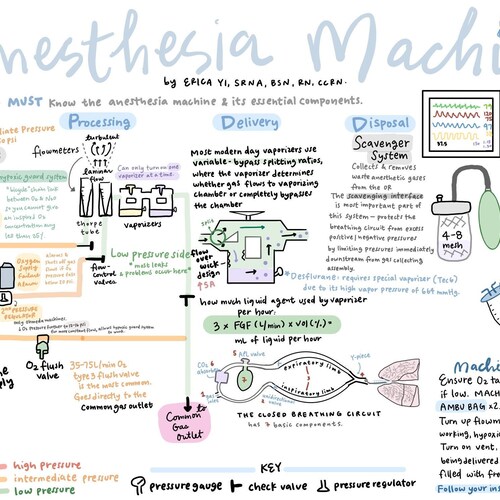 nesthesia Machi
by ERICA YI, SRNA, BSN, RN, CCRN.
MUST Know the anesthesia machine & its essential components.
diate Pressure
Processing
Delivery
Disposal
turbulent
flowmeters
laminar
flow
thorpe
tube
Can only turn on one
vaporizer at a time.
vaporizers
hypoxic guard system
"bicycle" chain link
between O2 & N2O
so you cannot give
an inspired O2
concentration any
less than 25%.
Oxygen
Supply
Failure
Alarm
flow-
control
valves
Low pressure side
*most leaks
& problems occur here*
2nd PRESSURE
REGULATOR
O2 flush
valve
35-75L/min O2
type 3 flush valve
is the most common.
Goes directly to the
common gas outlet
Most modern day vaporizers use
variable-bypass splitting ratios,
where the vaporizer determines
whether gas flows to vaporizing
chamber or completely bypasses
the chamber
split
flow
over
wick-
design
how much liquid agent used by vaporizer
per hour:
3 x FGF (L/min) x vol(%) =
mL of liquid per hour
Scavenger
System
Collects & removes
waste anesthetic gases
from the OR
The scavenging interface
is most important part of
this system - protects the
breathing circuit from excess
positive/negative pressures
by limiting pressures immediately
downstream from gas collecting
assembly.
*Desflurane: requires special vaporizer (Tec6)
due to its high vapor pressure of 669 mmHg.
4-8
mesh
APL valve
Y-piece
expiratory limb
inspiratory limb
THE CLOSED BREATHING CIRCUIT
HAS 7 basic components.
to
Common
Gas
Outlet
Machin
Ensure O2 ta
if low. MACH
AMBU BAG x2.
Turn up flowm
working, hypoxi
Turn on vent,
being delivered
filled with fre
Follow your ins
high pressure
intermediate pressure
low pressure
KEY
pressure gauge
check valve
pressure regulator